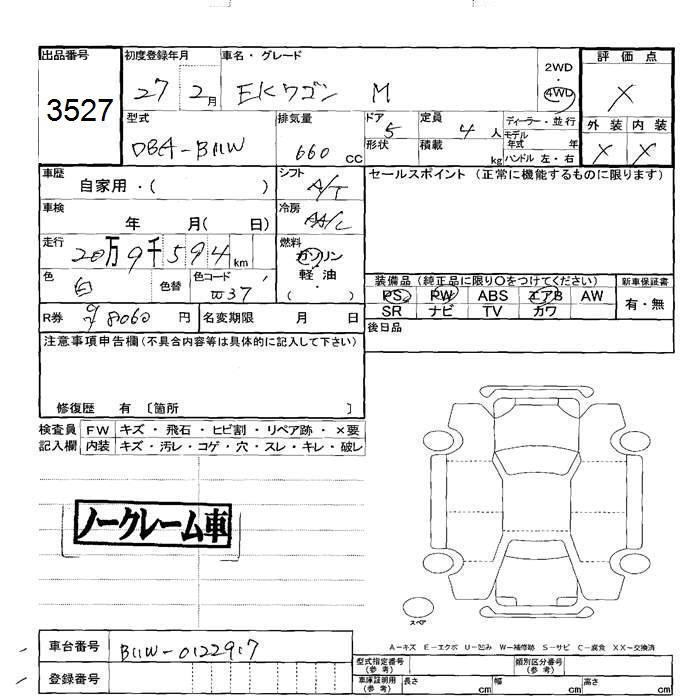 出品番号
3527
初度登録年月
27 2月
車名・グレード
EKワゴン M
2WD
4WD
評価点
X
外装 内装
X X
型式
DBA-B11W
排気量
660 cc
ドア 5
形状
定員 4人
積載 kg
ディーラー・並行
モデル年式 年
ハンドル 左・右
車歴
自家用・( )
シフト
A/T
車検
年 月( 日)
冷房
A/C
走行
20万9千594km
燃料
ガソリン
軽油
( )
色
白
色替
色コード
W37
R券
98060円
名変期限 月 日
セールスポイント(正常に機能するものに限ります)
装備品(純正品に限り〇をつけてください)
PS PW ABS エアB AW
SR ナビ TV カワ
新車保証書
有・無
後日品
注意事項申告欄(不具合内容等は具体的に記入して下さい)
修復歴 有 〔箇所 〕
検査員 FW キズ・飛石・ヒビ割・リペア跡・×要
記入欄 内装 キズ・汚レ・コゲ・穴・スレ・キレ・破レ
ノークレーム車
スペア
A-キズ E-エクボ U-凹み W-補修跡 S-サビ C-腐食 XX-交換済
車台番号
B11W-0122917
登録番号
型式指定番号(参考)
類別区分番号(参考)
車庫証明用(参考)
長さ cm 幅 cm 高さ cm